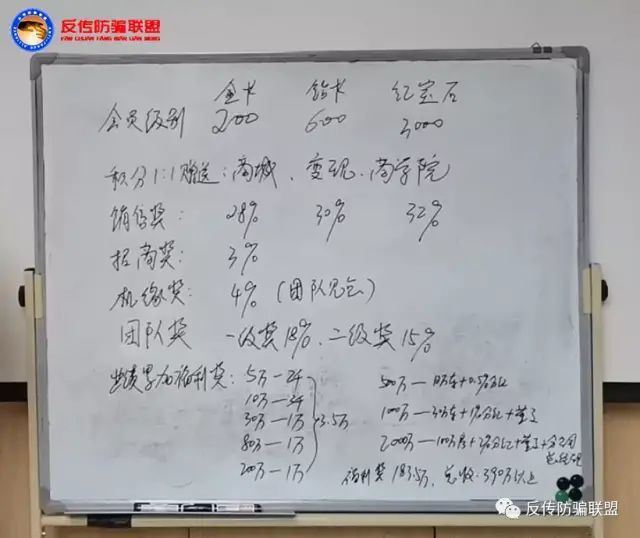 反传防骗联盟
FAN CHUAN FANG PIAN LIAN MENG
金卡 钻卡 红宝石
会员级别 200 600 3000
积分1:1赠送:商城、变现、商学院
销售奖: 28% 30% 32%
招商奖: 3%
机缘奖: 4% (团队见点)
团队奖 一级奖18%、二级奖15%
业绩累加福利奖: 5万—2千 500万—
10万—3千 3.5万 100万—
30万—1万 2000万—
80万—1万
200万—1万 福利奖183.5万、总收:390万以上
反传防骗联盟